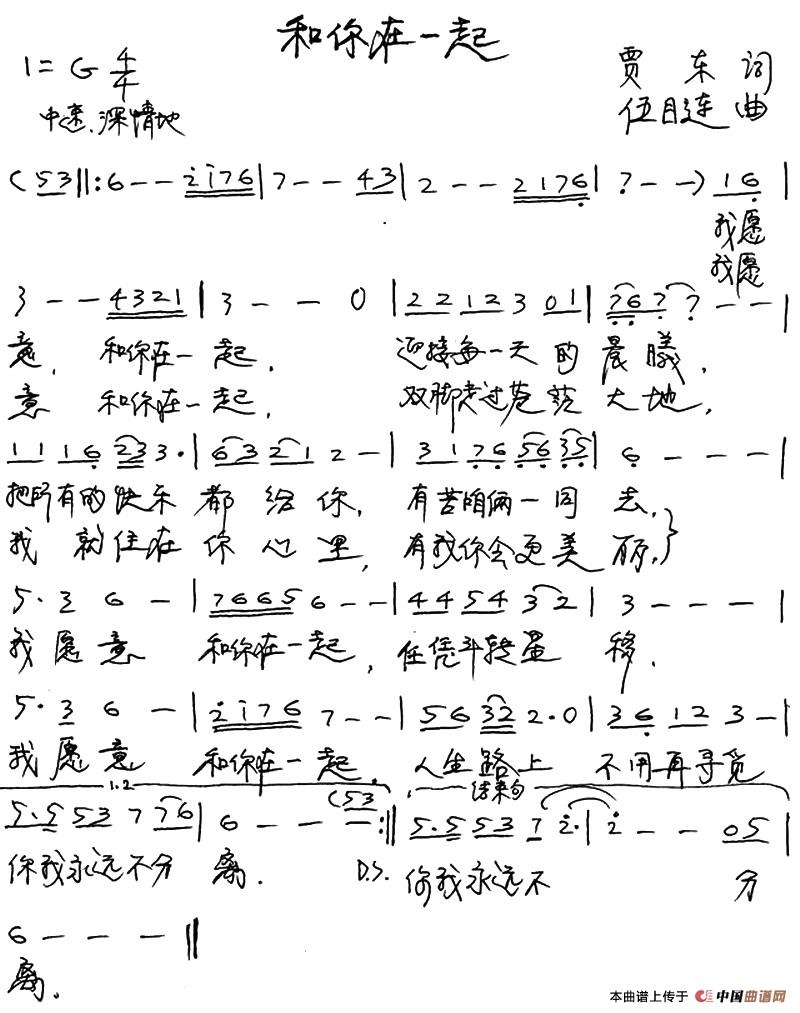 和你在一起
1=G 4/4
贾东 词
中速、深情地
伍目连 曲
(53‖:6--2176|7--43|2--2176|7--)16|
我愿
我愿
3--4321|3--0|22123 01|767 7--|
意,和你在一起,迎接每一天的晨曦,
意 和你在一起,双脚走过苍茫大地,
1116 233·|63212-|3176 5635|6---|
把所有的快乐都给你,有苦咱俩一同去,
我就住在你心里,有我你会更美丽,}
5·3 6-|76656--|4454 32|3---|
我愿意 和你在一起,任凭斗转星移.
5·3 6-|21767--|56322·0|36123-|
我愿意 和你在一起.人生路上 不用再寻觅
1.2 结束句
5·5 53 7 76|6--(53:‖5·5 53 7 2·|2--05|
你我永远不分离. D.S. 你我永远不 分
6---‖
离.
本曲谱上传于 中国曲谱网